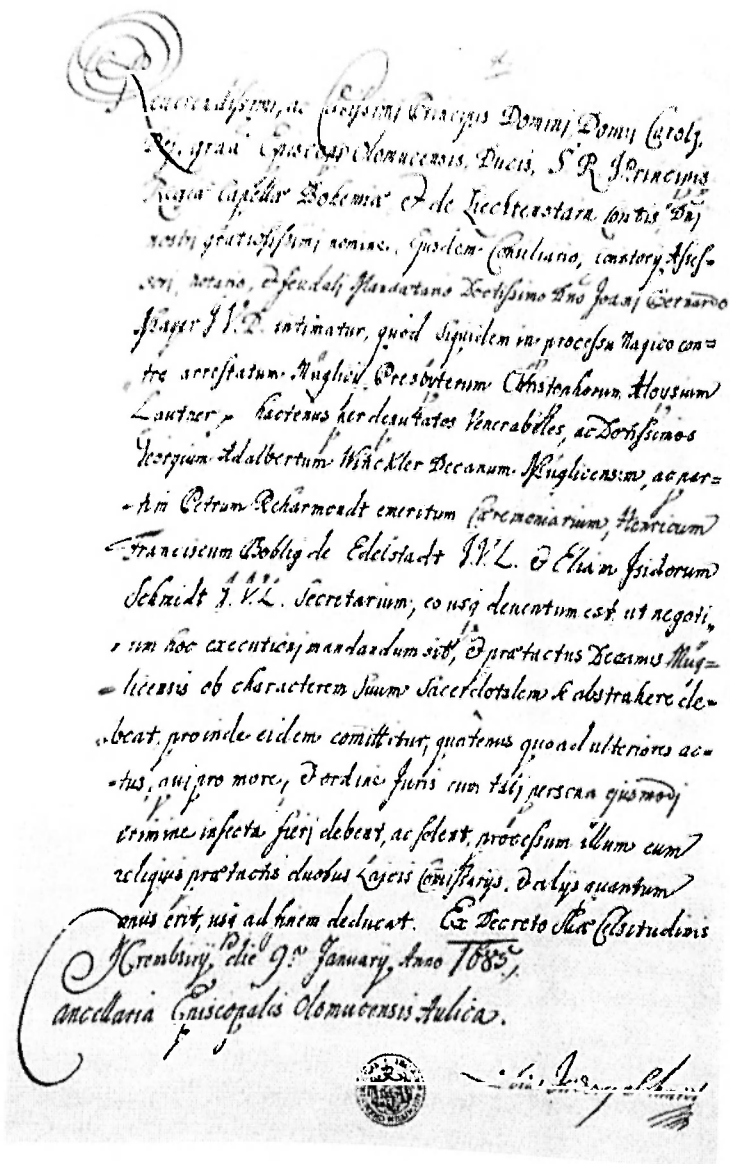 Reverendissimi, ac Celsissimi Principis Domini, Domini Caroli,
Dei gratia Episcopi Olomucensis, Ducis, S. R. I. Principis
Regiae Capellae Bohemiae et de Liechtenstain Comitis Dni
nostri gratiosissimi nomine, Ejusdem Consiliario, Asses=
sori, notario, et feudali Mandatario Doctissimo Dno Joani Bernardo
Mayer J. V. D. intimatur, quod siquidem in processu magico con=
tra arrestatum Muglicii Presbyterum Christophorum Aloysium
Lautner, hactenus per deputatos Venerabiles, ac Doctissimos
Georgium Adalbertum Winckler Decanum Muglicensem, ac par=
tim Petrum Reharmondt emeritum Caeremoniarium, Henricum
Franciscum Boblig de Edelstadt J. V. L. et Eliam Isidorum
Schmidt J. V. L. Secretarium, eo usq deventum est, ut negoti=
um hoc executioni mandandum sit, et praetactus Decanus Mug=
licensis ob characterem suum Sacerdotalem se abstrahere de=
beat, proinde eidem comittitur, quatenus quoad ulteriores ac=
tus, qui pro more, et ordine Juris cum tali persona ejusmodi
crimine infecta fieri debent, ac solent, processum illum cum
reliquis praetactis duobus Laicis Comissarijs, et alys quantum
opus erit, usq ad finem deducat. Ex Decreto Suae Celsitudinis
Crembsirij, die 9. January, Anno 1685,
Cancellaria Episcopalis Olomucensis Aulica.